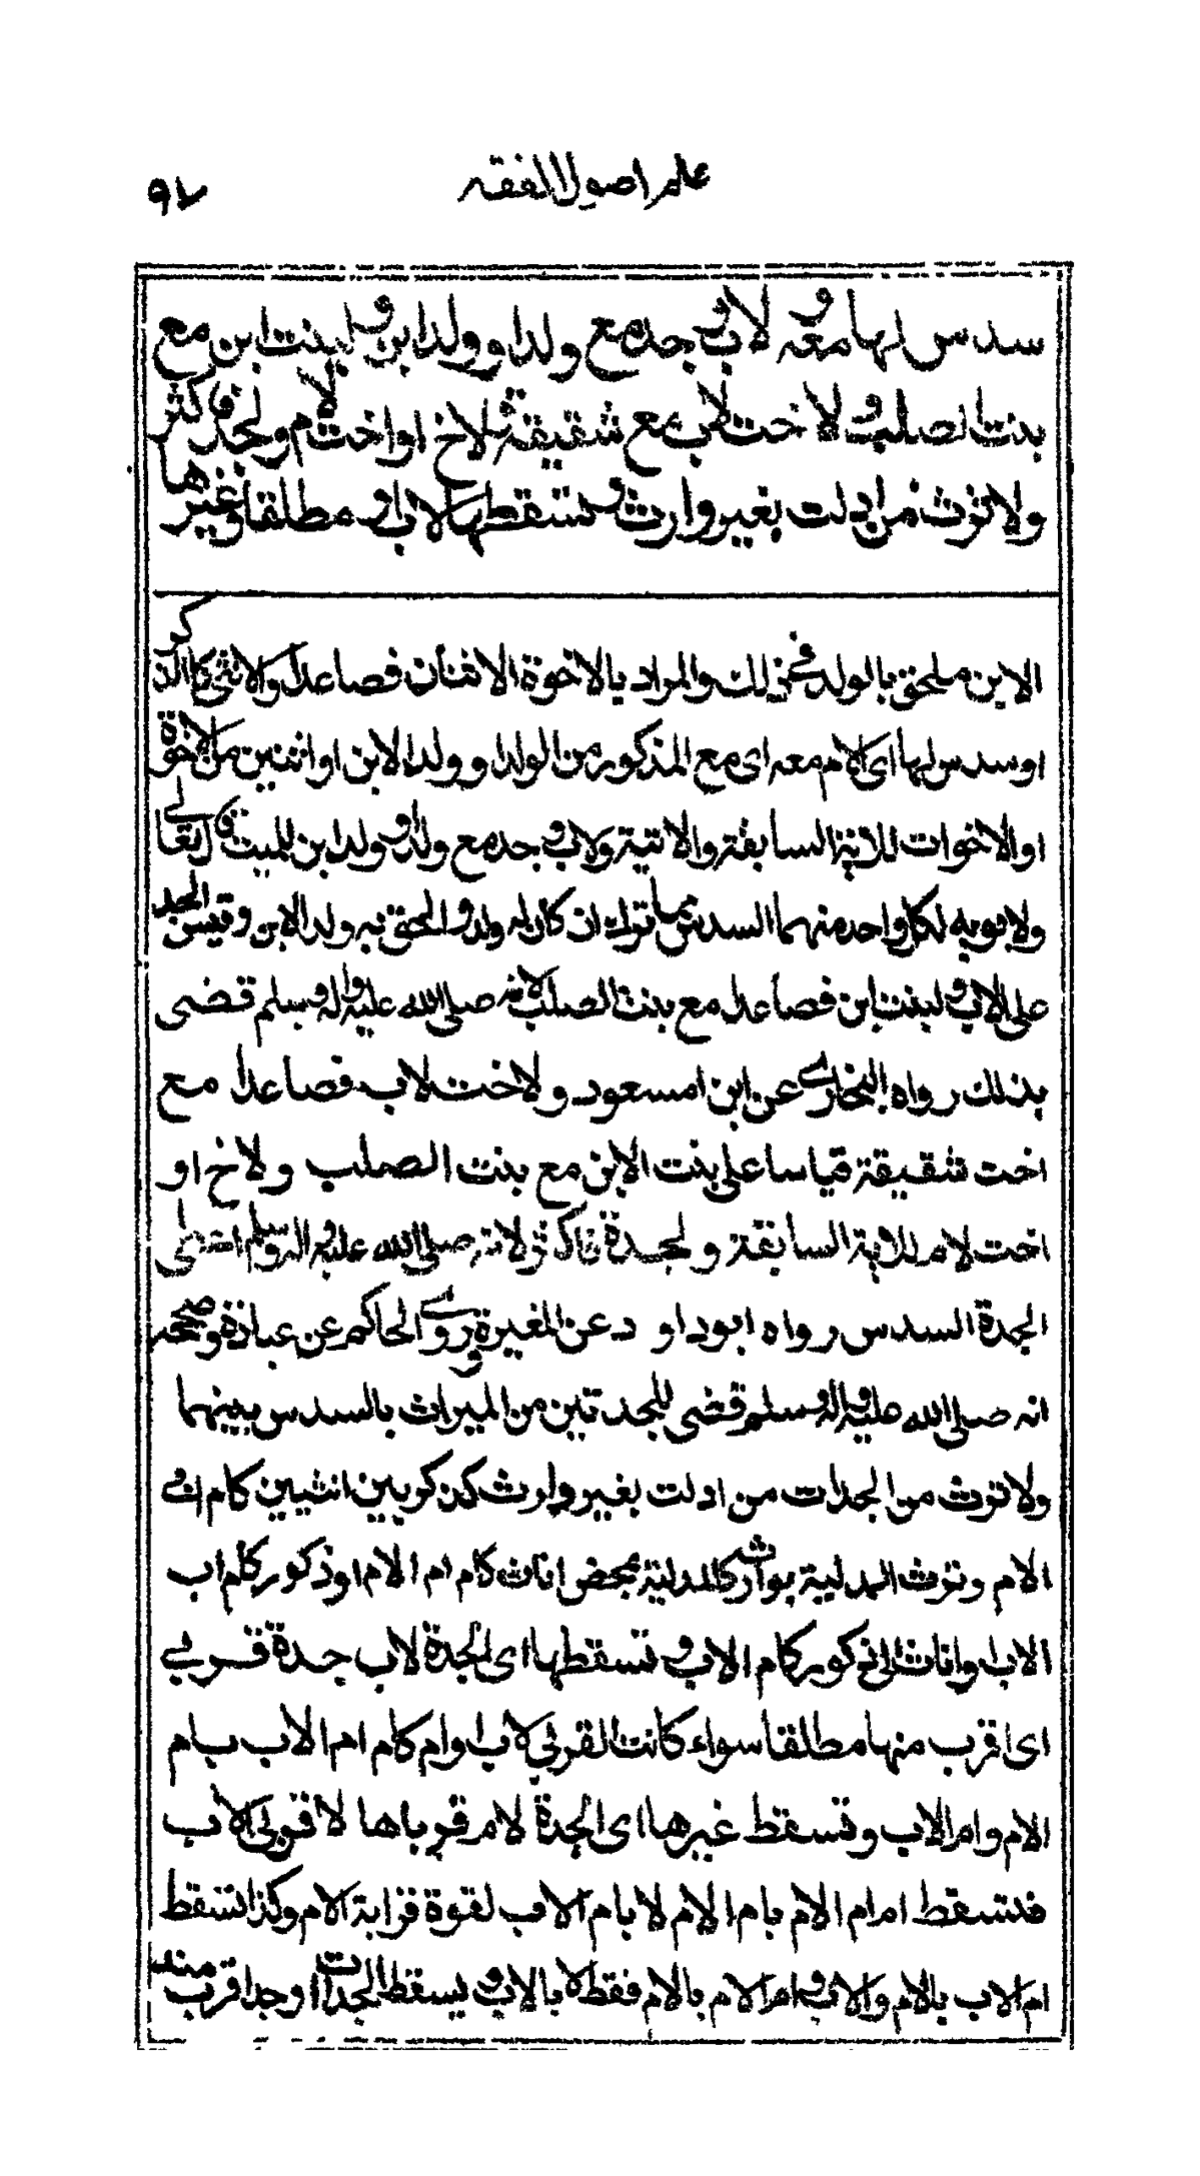 علم اصول الفقه
٩٧
سدس لها معه و لاب و جد مع ولد او ولد ابن و لبنت ابن مع
بنت لصلب و لاخت لاب مع شقيقة و لاخ او اخت لام و لجدة فاكثر
ولا ترث من ادلت بغير وارث و تسقطها لاب او مطلقا و غيرها
الابن ملحق بالولد في ذلك والمراد بالاخوة الاثنان فصاعدا والانثى كالذكر
او سدس لها اى الام معه اى مع المذكور من الولد او ولد الابن او اثنين من الاخوة
او الاخوات للاية السابقة والاتية ولاب و جد مع ولد او ولد ابن للميت قال تعالى
ولابويه لكل واحد منهما السدس مما ترك ان كان له ولد و الحق به ولد الابن و قيس الجد
على الاب و لبنت ابن فصاعدا مع بنت الصلب لانه صلى الله عليه واله وسلم قضى
بذلك رواه البخارى عن ابن امسعود ولاخت لاب فصاعدا مع
اخت شقيقة قياسا على بنت الابن مع بنت الصلب ولاخ او
اخت لام للاية السابقة ولجدة فاكثر لانه صلى الله عليه واله وسلم اعطى
الجدة السدس رواه ابوداود عن المغيرة وروى الحاكم عن عبادة وصححه
انه صلى الله عليه واله وسلم قضى للجدتين من الميراث بالسدس بينهما
ولا ترث من الجدات من ادلت بغير وارث كذكر بين انثيين كام ابى
الام و ترث المدلية بوارث كالمدلية بمحض اناث كام ام الام او ذكور كام اب
الاب او اناث الى ذكور كام ام الاب و تسقطها اى الجدة لاب جدة قربى
اى اقرب منها مطلقا سواء كانت القربى لاب او ام كام ام الاب بام
الام وام الاب و تسقط غيرها اى الجدة لام قرباها لا قربى لاب
فتسقط ام ام الام بام الام لا بام الاب لقوة قرابة الام وكذا تسقط
ام الاب بالام و الاب و ام الام بالام فقط لا بالاب و يسقط الجدات و جدا قرب منه